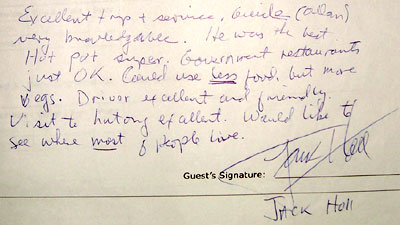 Excellent trip + service, Guide (Allan)
very knowledgable. He was the best.
Hot pot super. Government restaurants
just OK. Could use less food, but more
vegs. Driver excellent and friendly.
Visit to hutong excellent. Would like to
see where most of people live.
Guest's Signature:
JACK Holl